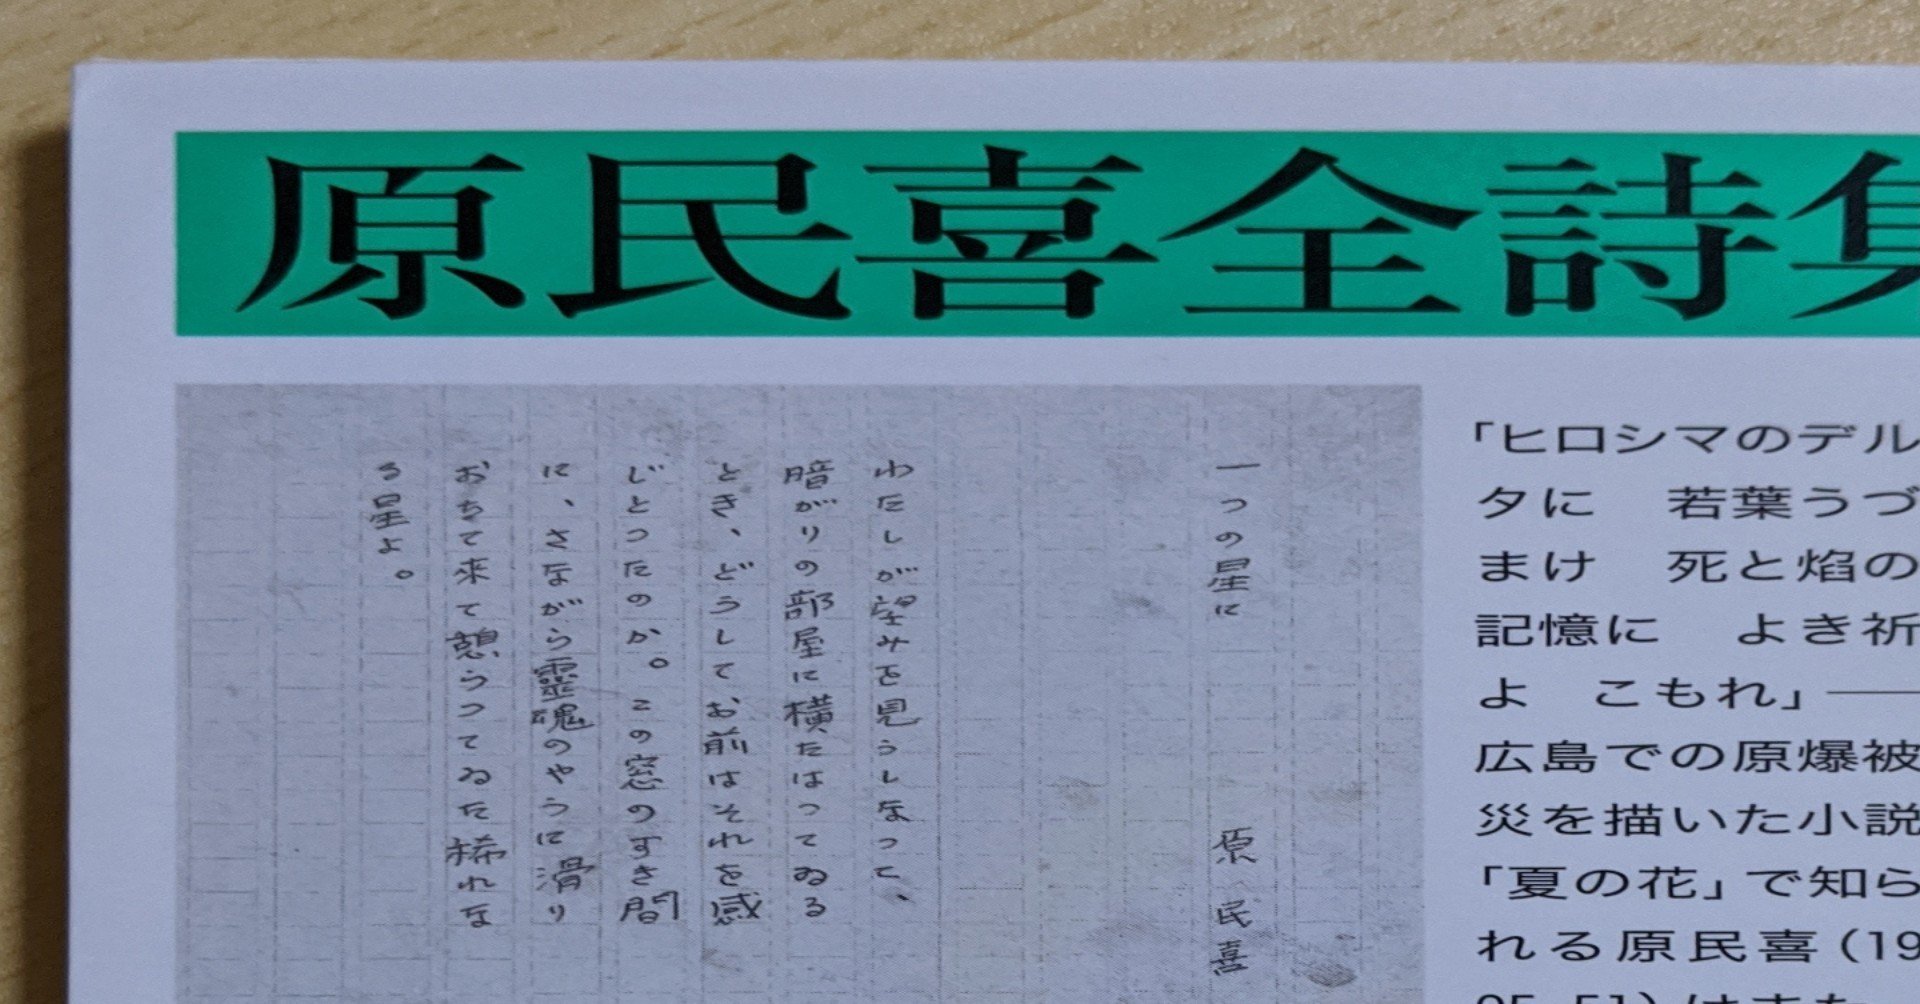 原民喜全詩集
一つの星に 原民喜
わたしが望みを見うしなって、
暗がりの部屋に横たはってゐる
とき、どうしてお前はそれを感
じとったのか。この窓のすき間
に、さながら霊魂のやうに滑り
おちて来て憩らってゐた稀れな
る星よ。
「ヒロシマのデル
タに 若葉うづ
まけ 死と焰の
記憶に よき祈
よ こもれ」―
広島での原爆被
災を描いた小説
「夏の花」で知ら
れる原民喜(19